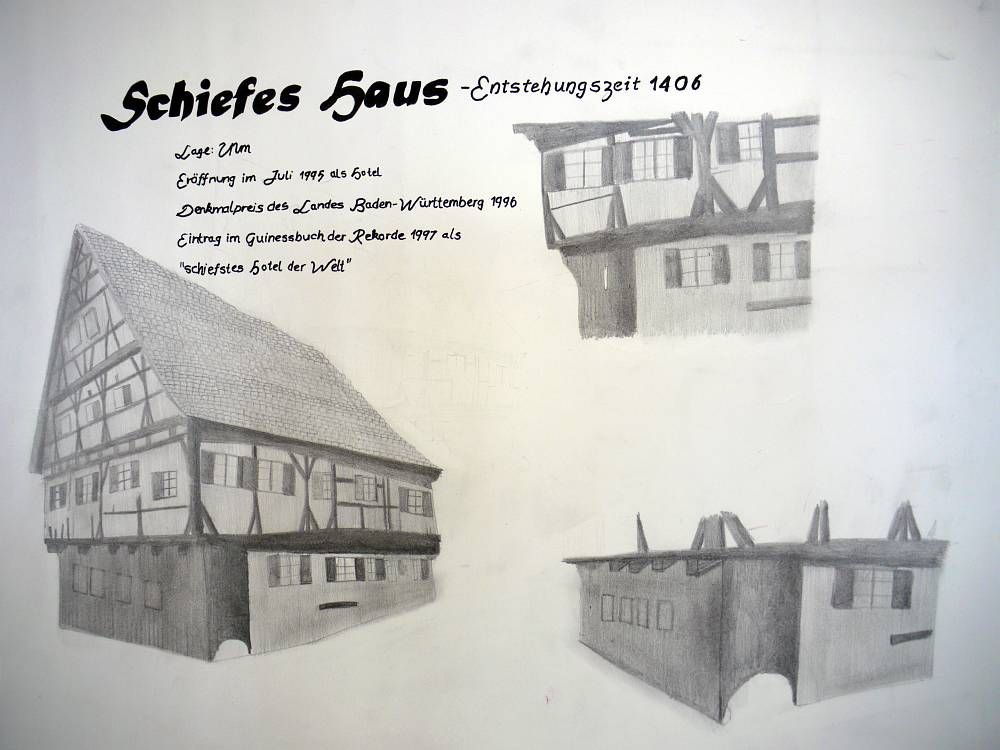 Schiefes Haus - Entstehungszeit 1406
Lage: Ulm
Eröffnung im Juli 1995 als Hotel
Denkmalpreis des Landes Baden-Württemberg 1996
Eintrag im Guinessbuch der Rekorde 1997 als
"schiefstes Hotel der Welt"